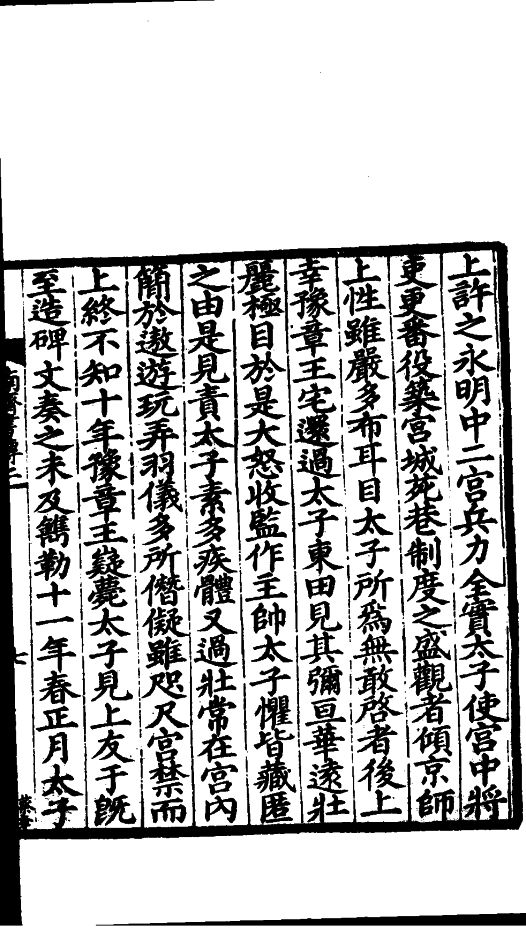 上許之永明中二宫兵力全實太子使宫中將
吏更番役築宫城苑巷制度之盛觀者傾京師
上性雖嚴多布耳目太子所爲無敢啓者後上
幸豫章王宅還過太子東田見其彌亘華逺壯
麗極目於是大怒收監作主帥太子懼皆藏匿
之由是見責太子素多疾體又過壯常在宫内
簡於遨遊玩弄羽儀多所僭儗雖咫尺宫禁而
上終不知十年豫章王嶷薨太子見上友于旣
至造碑文奏之未及鐫勒十一年春正月太子
七